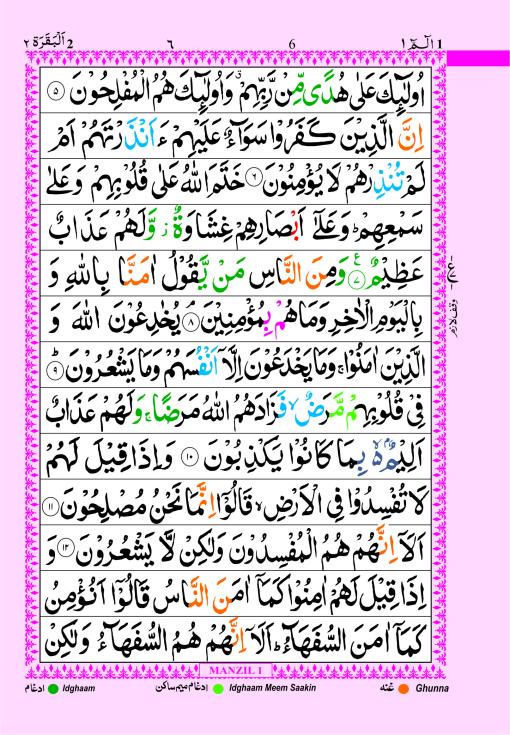 2 اَلْبَقَرَة ٢ ٦ 6 الٓمّٓ ١ 1
اُولٰٓئِكَ عَلٰى هُدًى مِّنْ رَّبِّهِمْ ۙ وَاُولٰٓئِكَ هُمُ الْمُفْلِحُوْنَ ۝٥
اِنَّ الَّذِيْنَ كَفَرُوْا سَوَآءٌ عَلَيْهِمْ ءَاَنْذَرْتَهُمْ اَمْ
لَمْ تُنْذِرْهُمْ لَا يُؤْمِنُوْنَ ۝٦ خَتَمَ اللّٰهُ عَلٰى قُلُوْبِهِمْ وَعَلٰى
سَمْعِهِمْ ؕ وَعَلٰٓى اَبْصَارِهِمْ غِشَاوَةٌ ز وَّلَهُمْ عَذَابٌ
عَظِيْمٌ ۝٧ ع وَمِنَ النَّاسِ مَنْ يَّقُوْلُ اٰمَنَّا بِاللّٰهِ وَ
بِالْيَوْمِ الْاٰخِرِ وَمَا هُمْ بِمُؤْمِنِيْنَ ۝٨ۘ يُخٰدِعُوْنَ اللّٰهَ وَ
الَّذِيْنَ اٰمَنُوْا ۚ وَمَا يَخْدَعُوْنَ اِلَّآ اَنْفُسَهُمْ وَمَا يَشْعُرُوْنَ ۝٩ؕ
فِيْ قُلُوْبِهِمْ مَّرَضٌ ۙ فَزَادَهُمُ اللّٰهُ مَرَضًا ۚ وَلَهُمْ عَذَابٌ
اَلِيْمٌ ۢ ۙ بِمَا كَانُوْا يَكْذِبُوْنَ ۝١٠ وَاِذَا قِيْلَ لَهُمْ
لَا تُفْسِدُوْا فِى الْاَرْضِ ۙ قَالُوْٓا اِنَّمَا نَحْنُ مُصْلِحُوْنَ ۝١١
اَلَآ اِنَّهُمْ هُمُ الْمُفْسِدُوْنَ وَلٰكِنْ لَّا يَشْعُرُوْنَ ۝١٢ وَ
اِذَا قِيْلَ لَهُمْ اٰمِنُوْا كَمَآ اٰمَنَ النَّاسُ قَالُوْٓا اَنُؤْمِنُ
كَمَآ اٰمَنَ السُّفَهَآءُ ؕ اَلَآ اِنَّهُمْ هُمُ السُّفَهَآءُ وَلٰكِنْ
وقف لازم
MANZIL 1
ادغام Idghaam ادغام میم ساکن Idghaam Meem Saakin غنه Ghunna